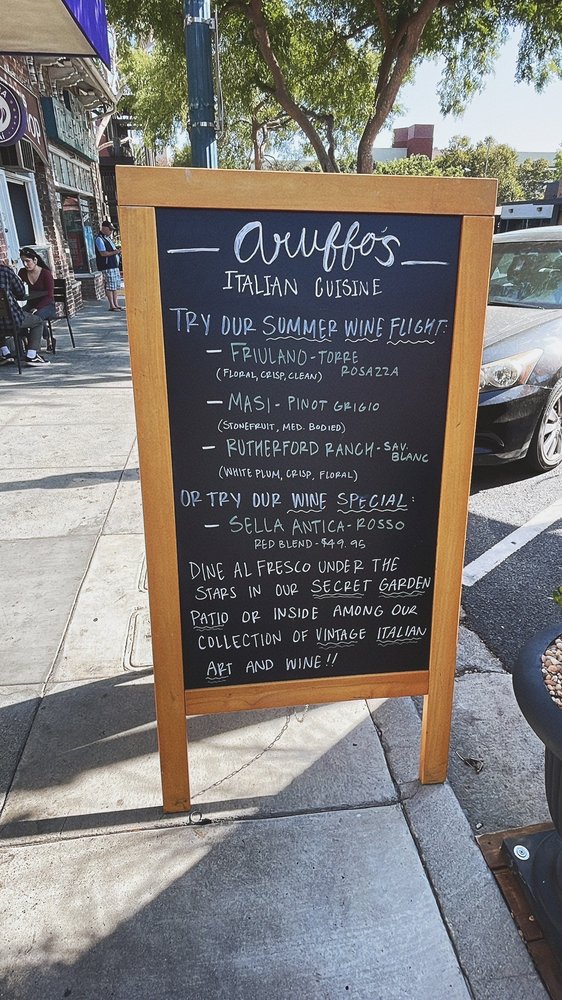 aruffo's
ITALIAN CUISINE
TRY OUR SUMMER WINE FLIGHT:
– FRIULANO-TORRE
(FLORAL, CRISP, CLEAN) ROSAZZA
– MASI - PINOT GRIGIO
(STONEFRUIT, MED. BODIED)
– RUTHERFORD RANCH - SAV.
BLANC
(WHITE PLUM, CRISP, FLORAL)
OR TRY OUR WINE SPECIAL:
– SELLA ANTICA - ROSSO
RED BLEND - $49.95
DINE AL FRESCO UNDER THE
STARS IN OUR SECRET GARDEN
PATIO OR INSIDE AMONG OUR
COLLECTION OF VINTAGE ITALIAN
ART AND WINE!!